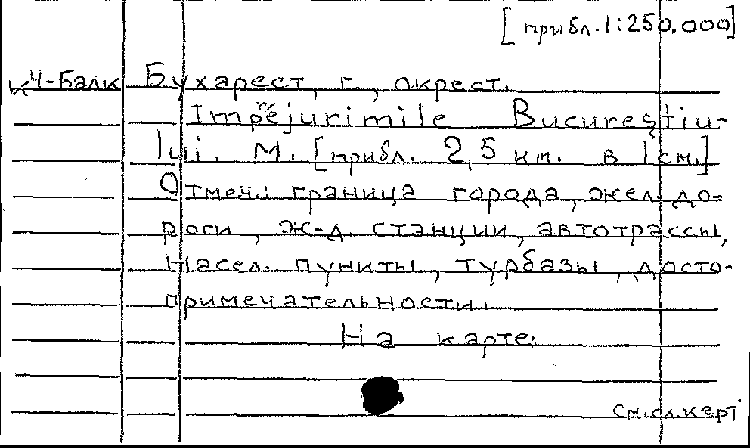 [прибл. 1:250.000]
к4-Балк Бухарест, г., окрест.
Împrejurimile Bucureştiu-
lui. М. [прибл. 2,5 км. в 1 см.]
Отмеч. граница города, жел. до-
роги, ж-д. станции, автотрассы,
насел. пункты, турбазы, досто-
примечательности.
На карте:
См. сл. карт